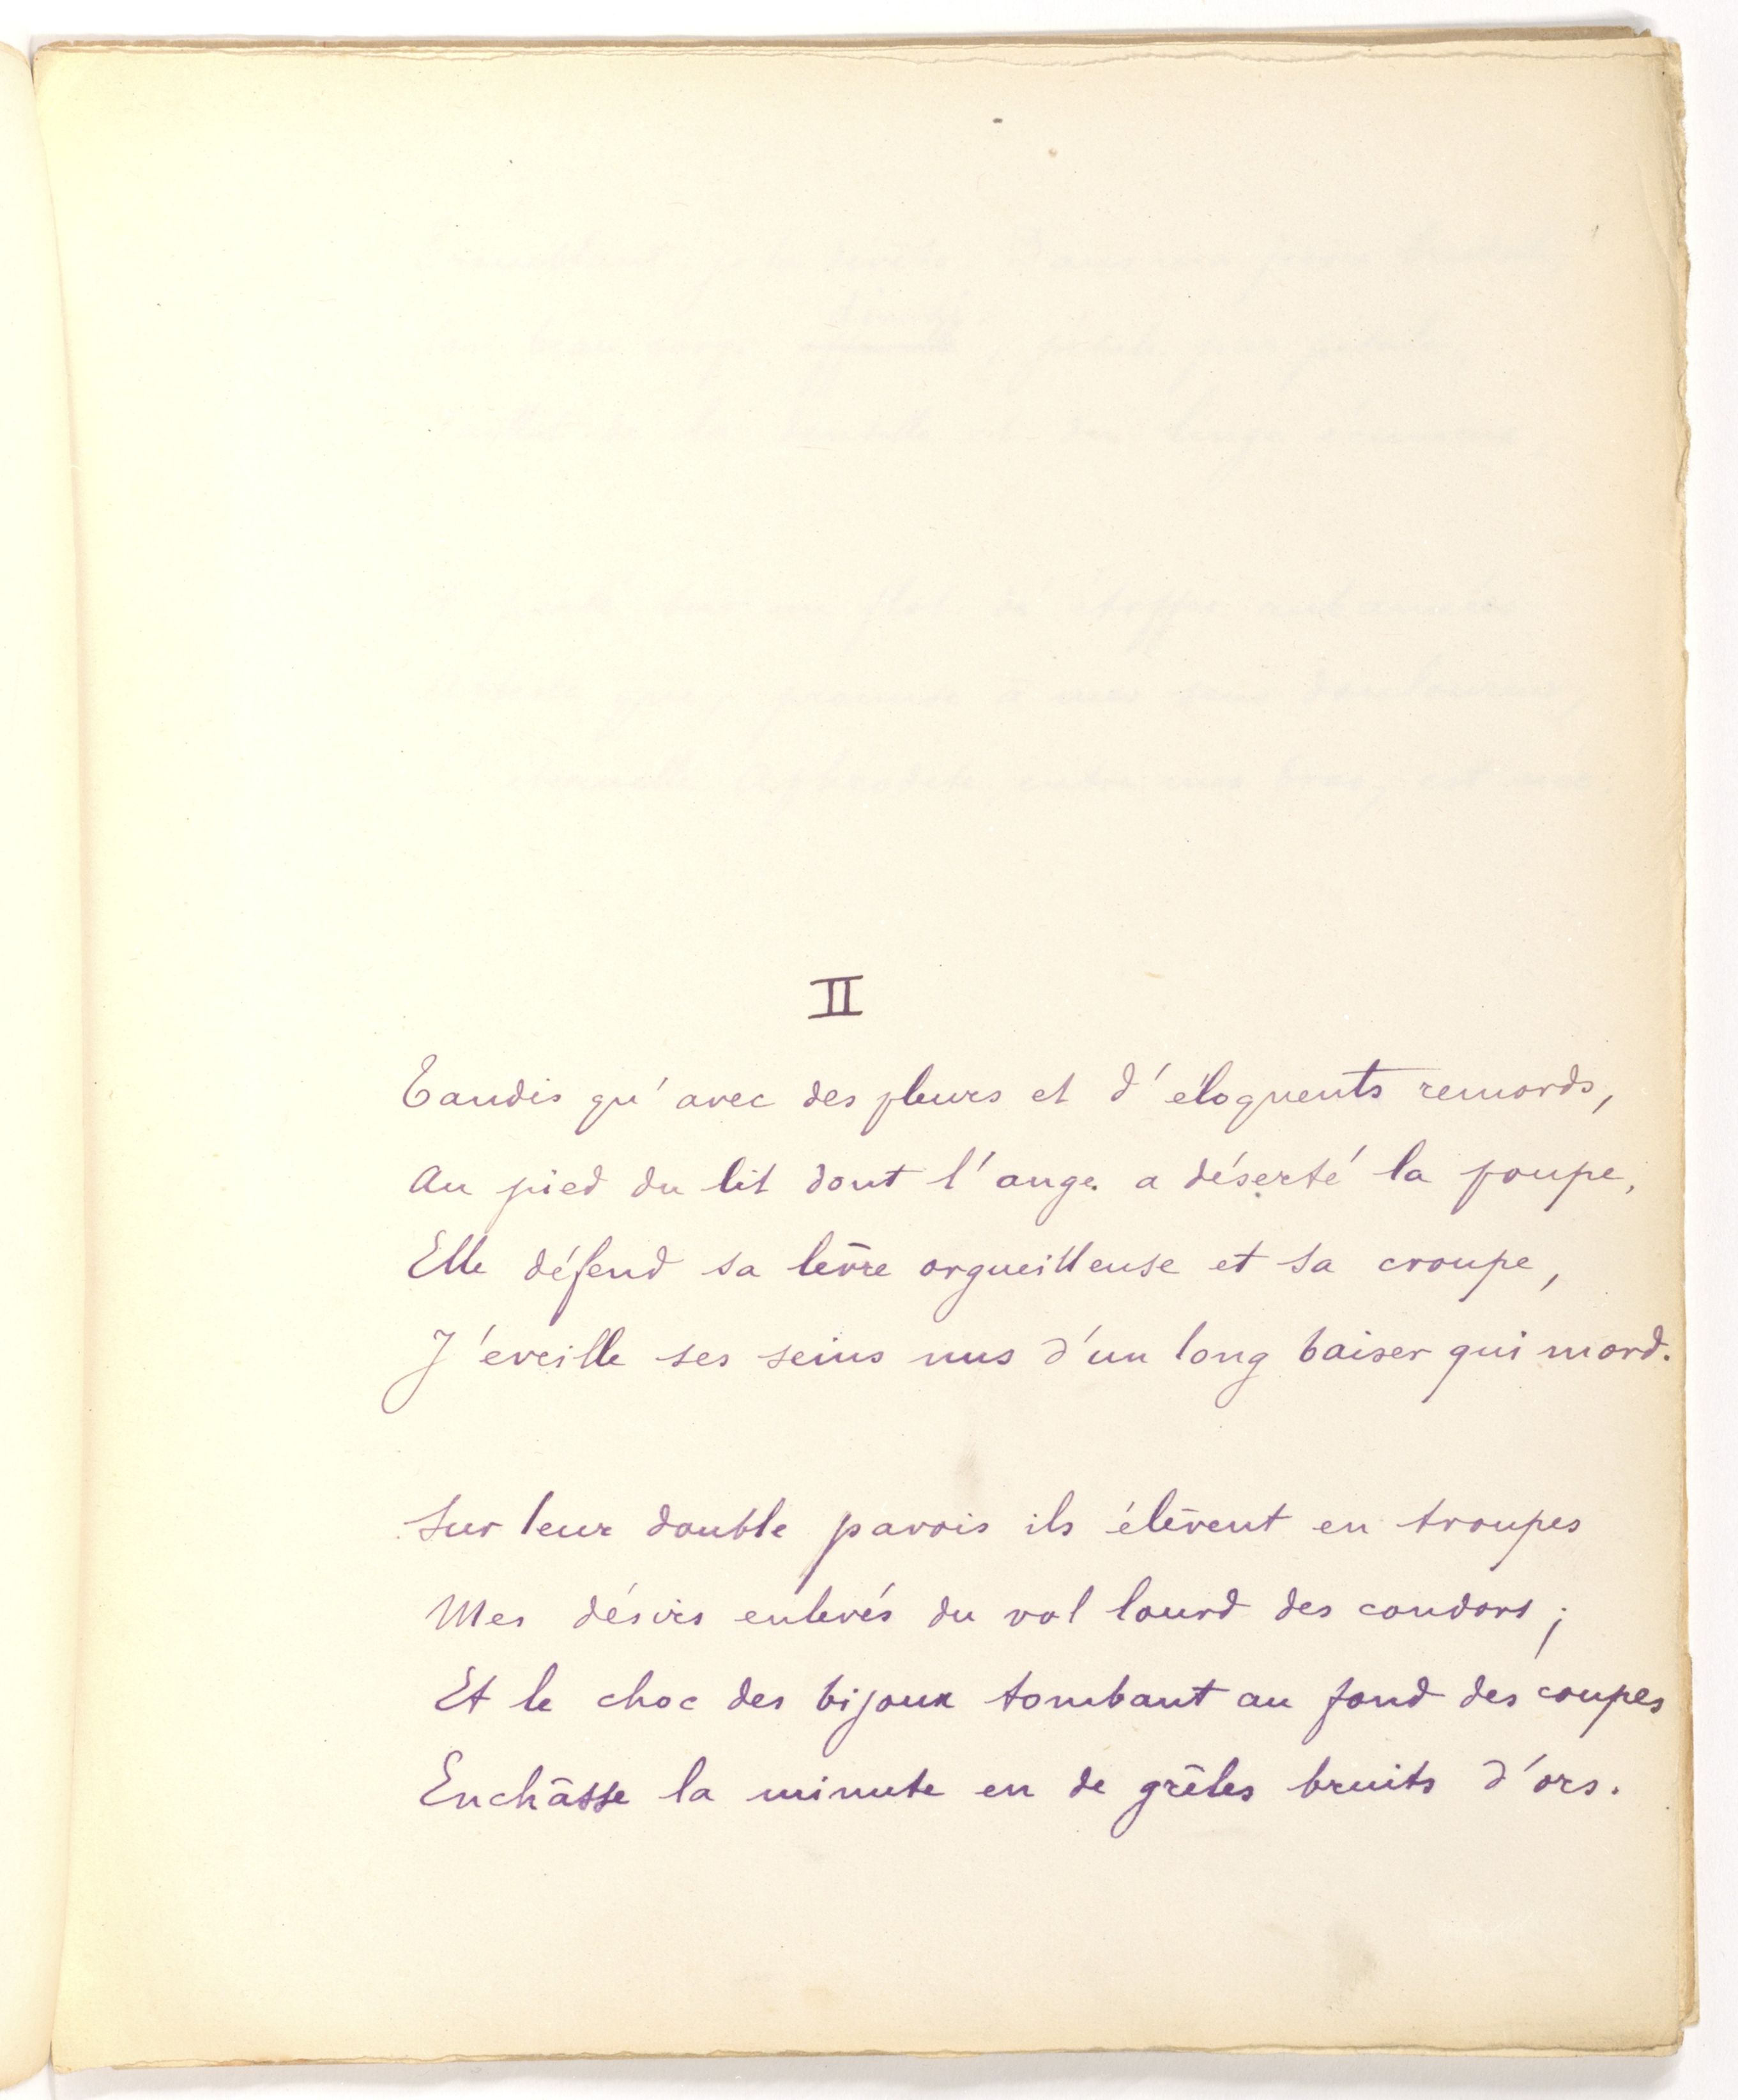 II
Tandis qu'avec des pleurs et d'éloquents remords,
Au pied du lit dont l'ange a déserté la poupe,
Elle défend sa lèvre orgueilleuse et sa croupe,
J'éveille ses seins nus d'un long baiser qui mord.
Sur leur double pavois ils élèvent en troupes
Mes désirs enlevés du vol lourd des condors ;
Et le choc des bijoux tombant au fond des coupes
Enchâsse la minute en de grêles bruits d'ors.